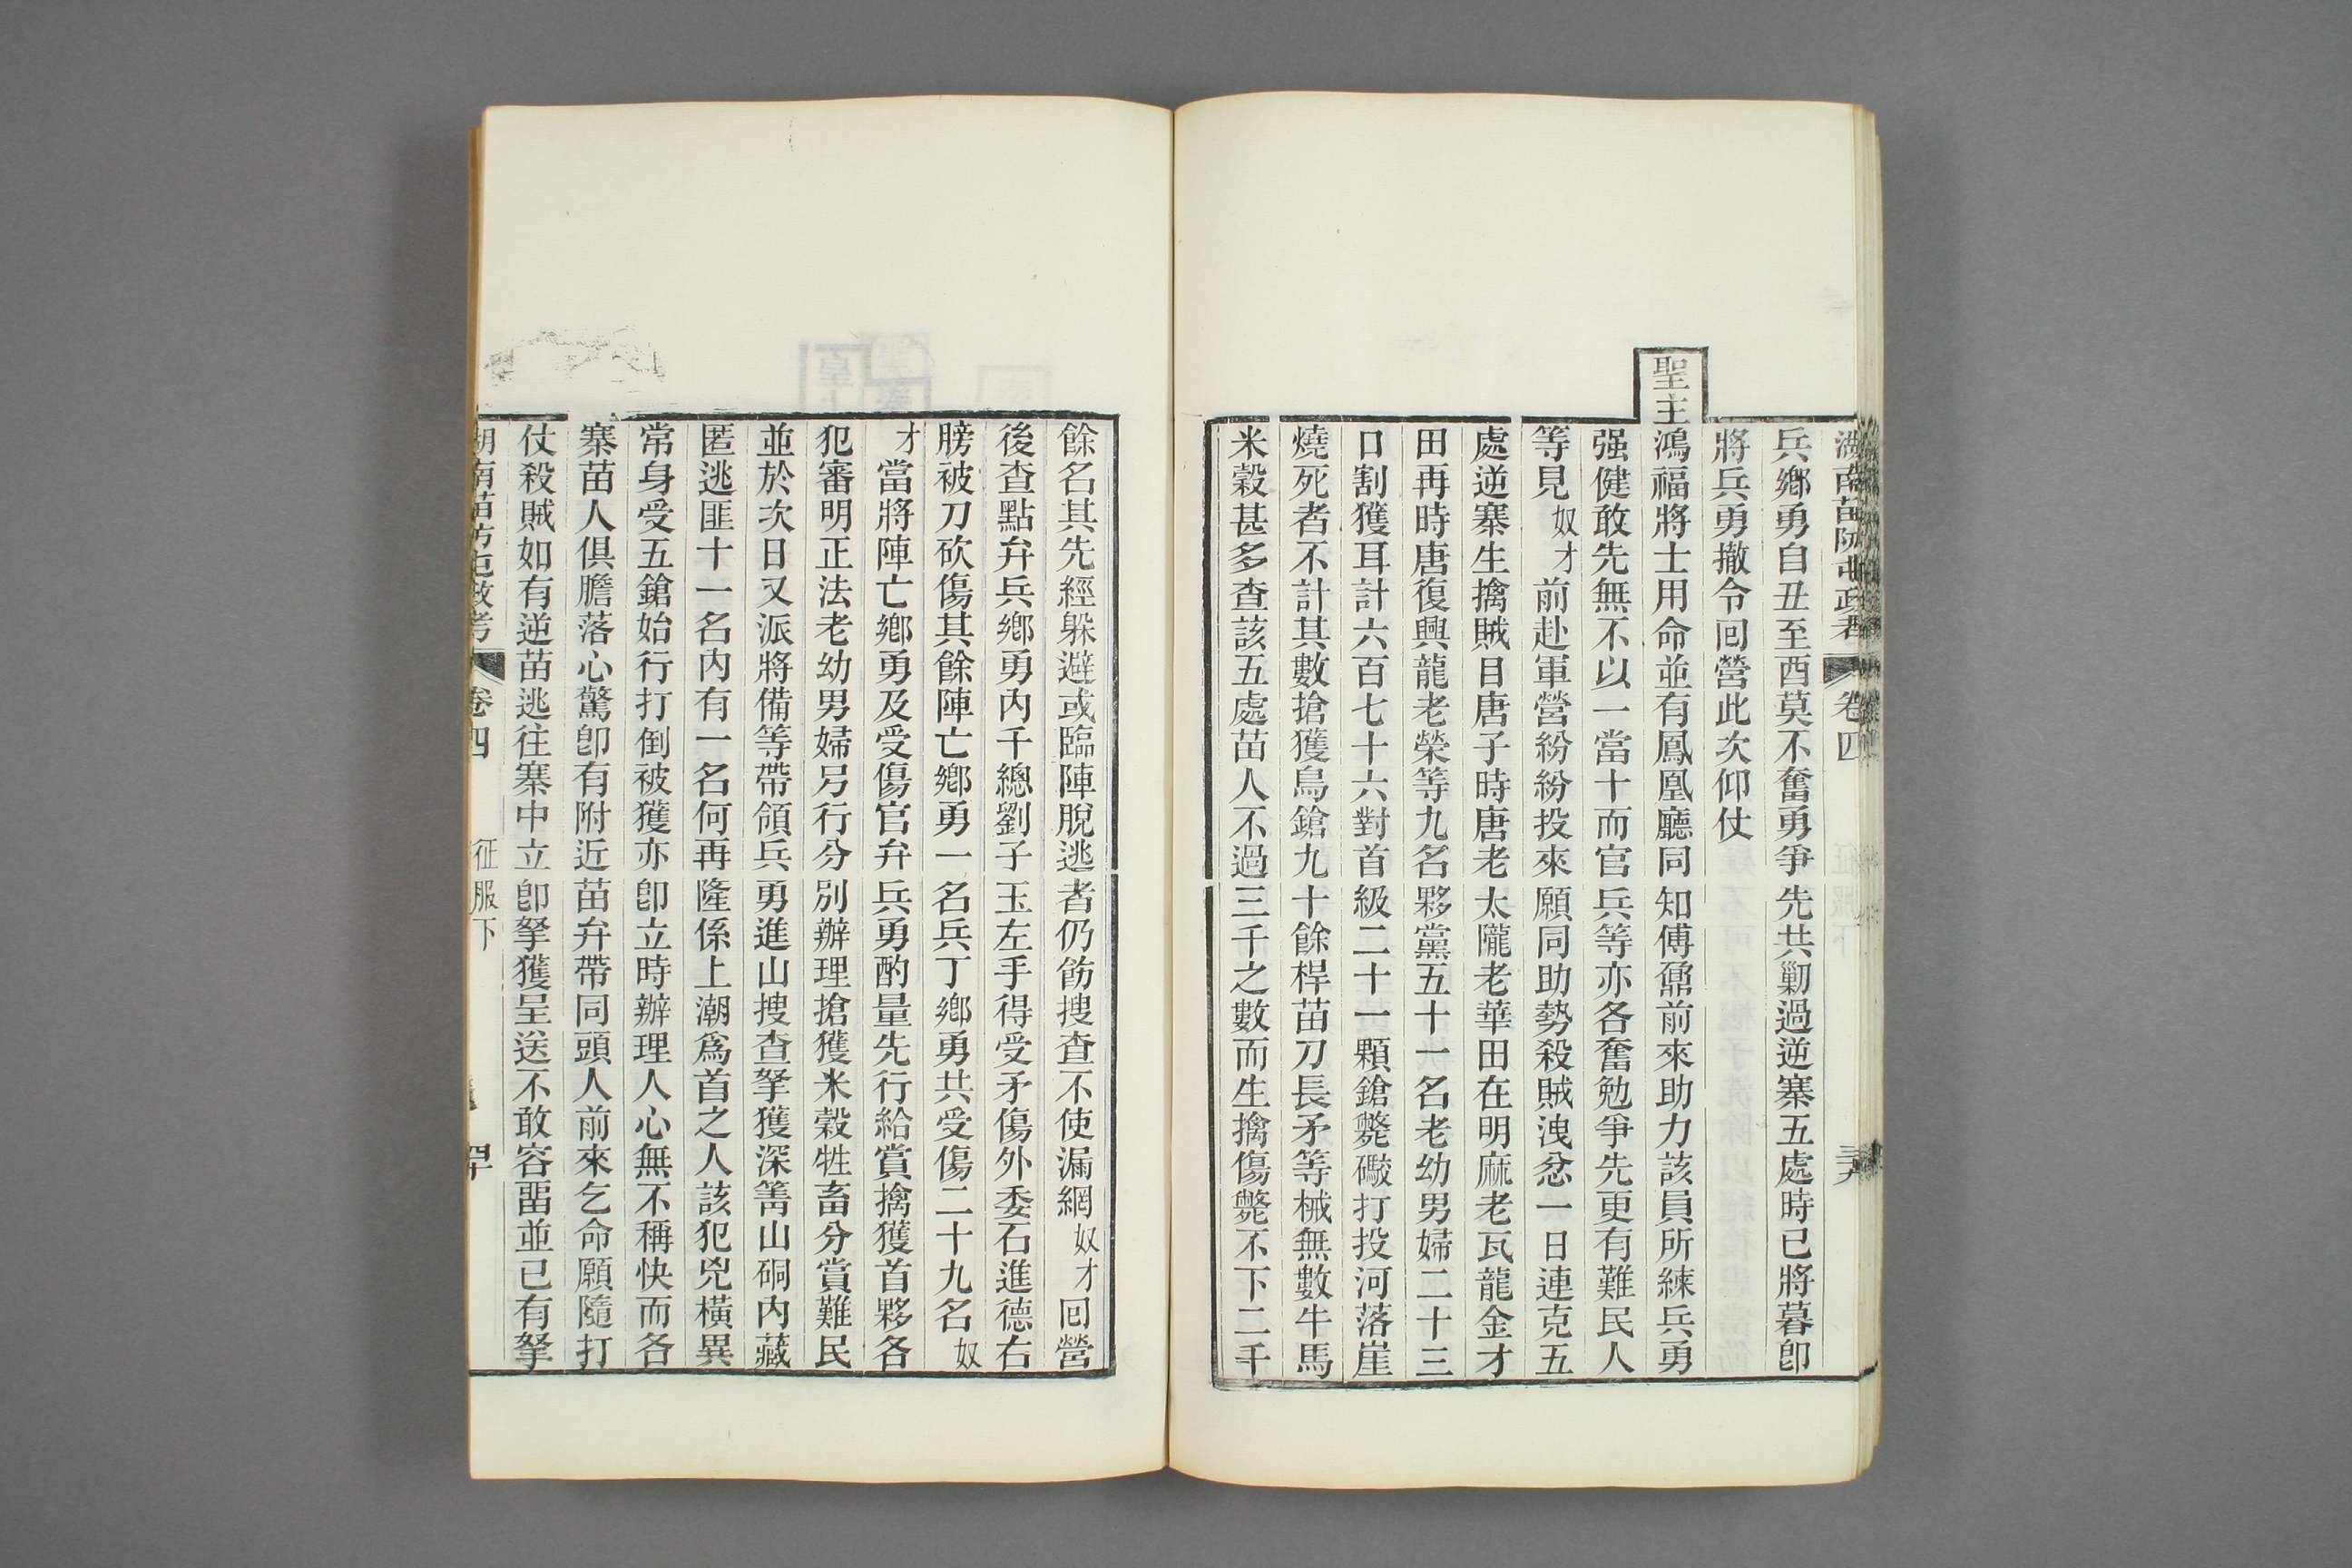 兵鄉勇自丑至酉莫不奮勇爭先共剿過逆寨五處時已將暮卽
將兵勇撤令回營此次仰仗
聖主鴻福將士用命並有鳳凰廳同知傅鼐前來助力該員所練兵勇
强健敢先無不以一當十而官兵等亦各奮勉爭先更有難民人
等見奴才前赴軍營紛紛投來願同助勢殺賊洩忿一日連克五
處逆寨生擒賊目唐子時唐老太隴老華田在明麻老瓦龍金才
田再時唐復興龍老榮等九名夥黨五十一名老幼男婦二十三
口割獲耳計六百七十六對首級二十一顆鎗斃礮打投河落崖
燒死者不計其數搶獲鳥鎗九十餘桿苗刀長矛等械無數牛馬
米穀甚多查該五處苗人不過三千之數而生擒傷斃不下二千
餘名其先經躲避或臨陣脫逃者仍飭搜查不使漏網奴才回營
後查點弁兵鄉勇內千總劉子玉左手得受矛傷外委石進德右
膀被刀砍傷其餘陣亡鄉勇一名兵丁鄉勇共受傷二十九名奴
才當將陣亡鄉勇及受傷官弁兵勇酌量先行給賞擒獲首夥各
犯審明正法老幼男婦另行分別辦理搶獲米穀牲畜分賞難民
並於次日又派將備等帶領兵勇進山搜查拏獲深箐山硐內藏
匿逃匪十一名內有一名何再隆係上潮爲首之人該犯兇橫異
常身受五鎗始行打倒被獲亦卽立時辦理人心無不稱快而各
寨苗人俱膽落心驚卽有附近苗弁帶同頭人前來乞命願隨打
仗殺賊如有逆苗逃往寨中立卽拏獲呈送不敢容畱並已有拏
湖南苗防屯政考 卷四 征服下 四十